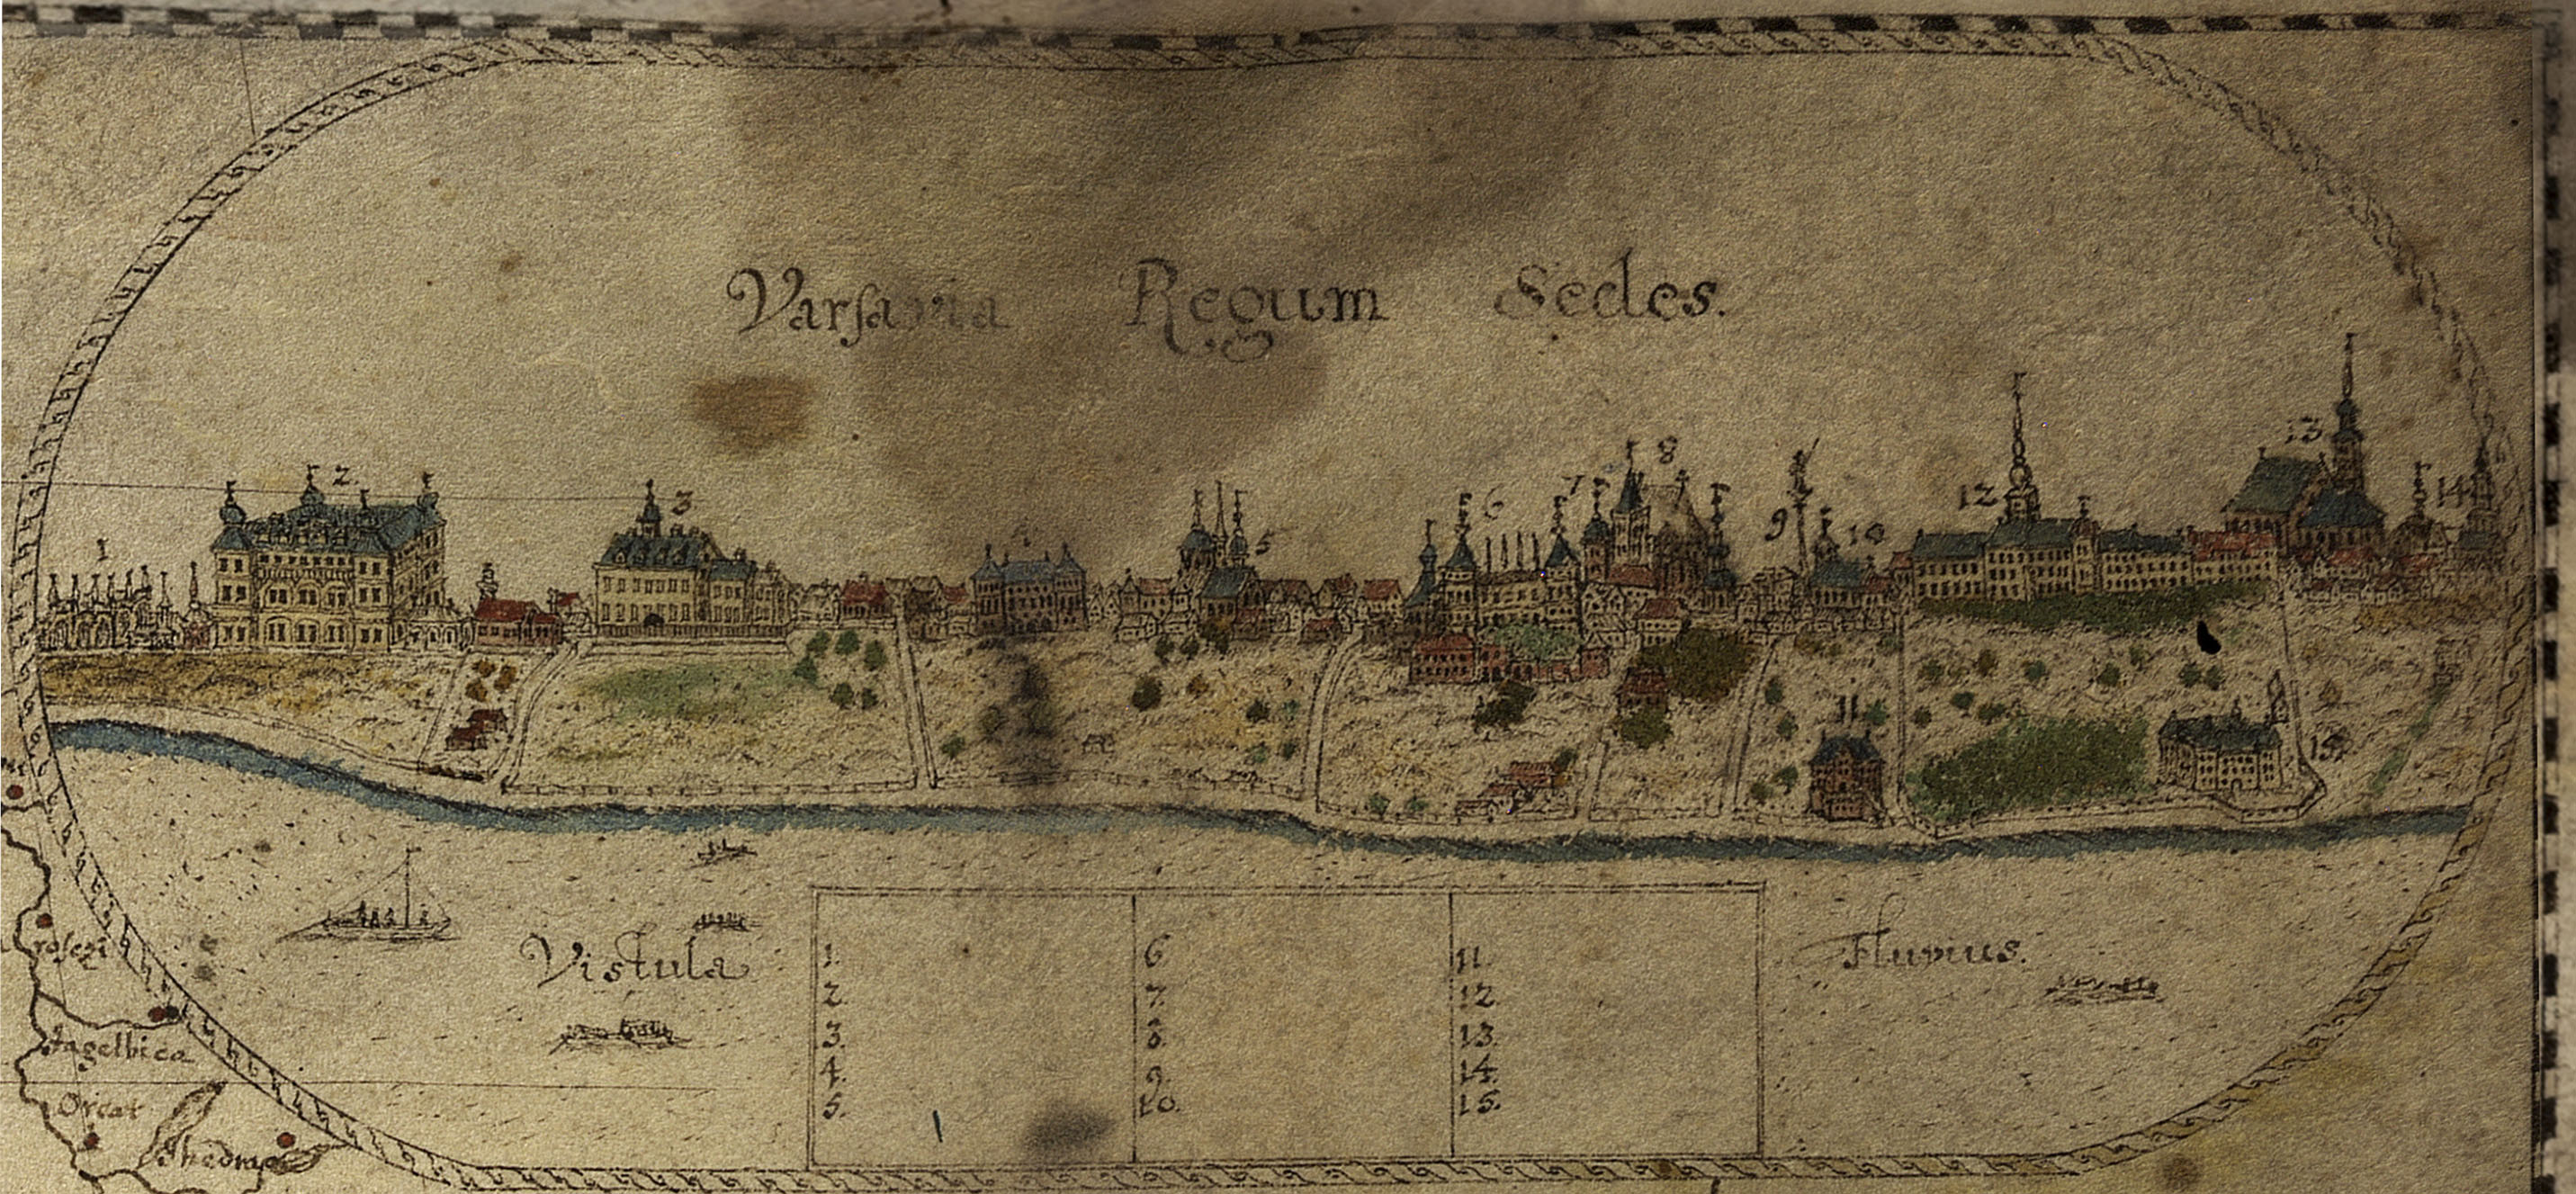 Varsavia Regum Sedes.
1
2.
3
5
6
7
8
9
10
11
12
13
14
15
Vistula
Fluvius.
1. 6 11.
2. 7. 12.
3. 8. 13.
4. 9. 14.
5. 10. 15.
Jagelbica
Orcar